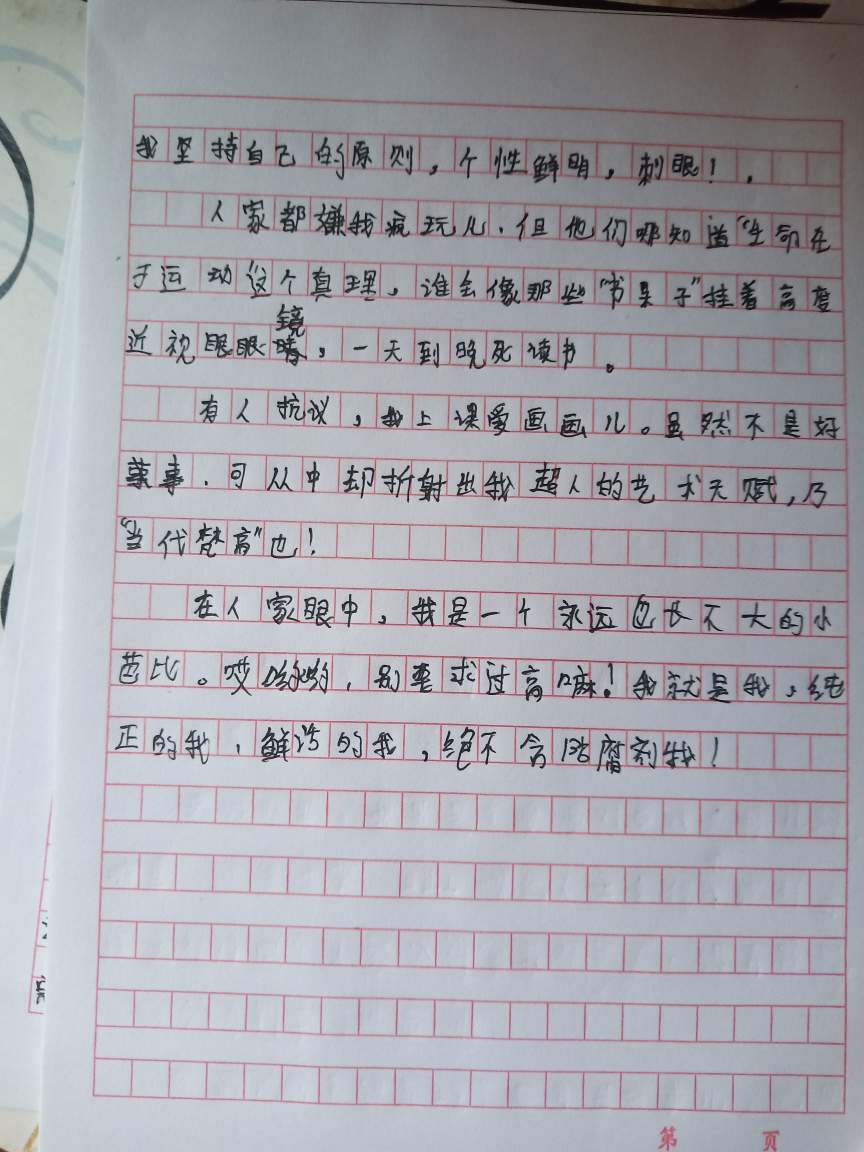 我坚持自己的原则，个性鲜明，刺眼！.
人家都嫌我疯玩儿.但他们哪知道“生命在
于运动”这个真理，谁会像那些“书呆子”挂着高度
近视眼眼镜，一天到晚死读书。
有人抗议，我上课爱画画儿。虽然不是好
事.可从中却折射出我超人的艺术天赋，乃
“当代梵高”也！
在人家眼中，我是一个永远也长不大的小
芭比。哎哟哟，别要求过高嘛！我就是我，纯
正的我，鲜活的我，绝不含防腐剂我！
第 页